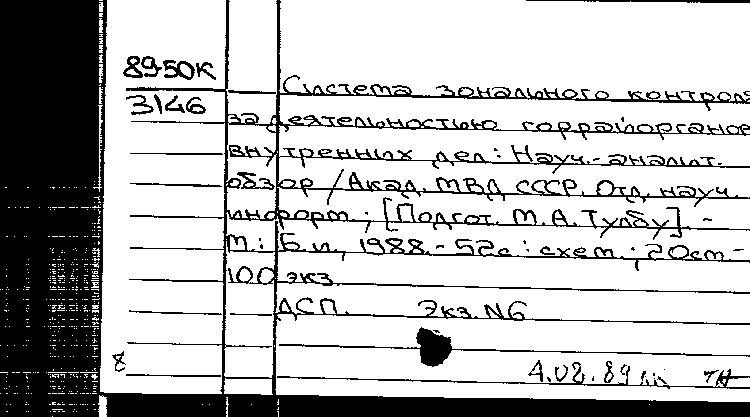 89-50К
3146
Система зонального контроля
за деятельностью горрайорганов
внутренних дел: Науч.-аналит.
обзор / Акад. МВД СССР. Отд. науч.
информ.; [Подгот. М. А. Тулбу]. -
М.: Б.и., 1988. - 52с.: схем.; 20см -
100 экз.
ДСП. Экз. N6
8
4.08.89